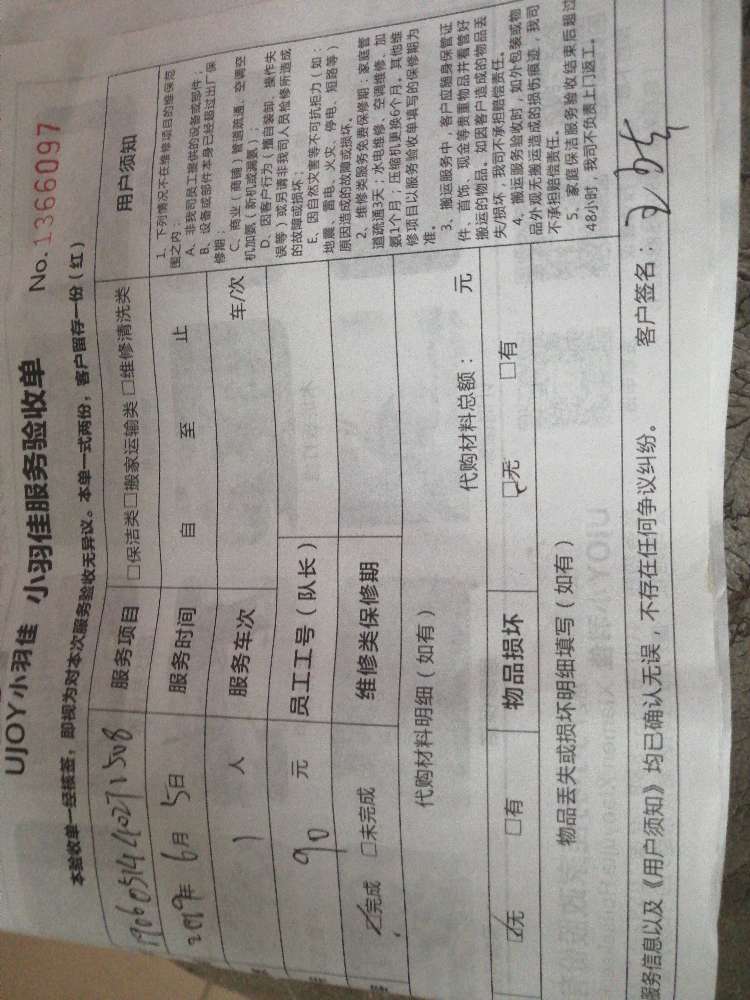 UJOY小羽佳 小羽佳服务验收单 No.1366097
本验收单一经核签，即视为对本次服务验收无异议。本单一式两份，客户留存一份（红）
服务项目 □保洁类□搬家运输类 □维修清洗类
2019年 6月 5日 服务时间 自 至 止
1 人 服务车次 车/次
90 元 员工工号（队长）
☑完成 □未完成 维修类保修期
代购材料明细（如有） 代购材料总额： 元
☑无 □有 物品损坏 ☑无 □有
物品丢失或损坏明细填写（如有）
服务信息以及《用户须知》均已确认无误，不存在任何争议纠纷。 客户签名：
用户须知
1、下列情况不在维修项目的维保范
围之内：
A、非我司员工提供的设备或部件；
B、设备或部件本身已经超过出厂保
修期；
C、商业（商铺）管道疏通、空调空
机加氨（新机或漏氨）；
D、因客户行为（擅自装卸、操作失
误等）或另请非我司人员检修所造成
的故障或损坏；
E、因自然灾害等不可抗拒力（如：
地震、雷电、火灾、停电、短路等）
原因造成的故障或损坏。
2、维修类服务免费保修期：家庭管
道疏通3天；水电维修、空调维修、加
氨1个月；压缩机更换6个月。其他维
修项目以服务验收单填写的保修期为
准。
3、搬运服务中，客户应随身保管证
件、首饰、现金等贵重物品并看管好
搬运的物品。如因客户造成的物品丢
失损坏，我司不承担赔偿责任。
4、搬运服务验收时，如外包装或物
品外观无搬运造成的损伤痕迹，我司
不承担赔偿责任。
5、家庭保洁服务验收结束后超过
48小时，我司不负责上门返工。